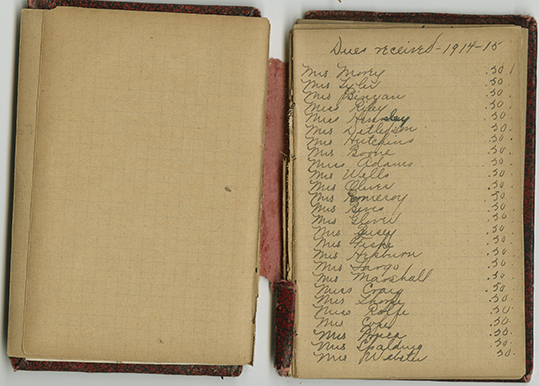 Dues received - 1914-15
Mrs Morey .50
Mrs Tyler .50
Mrs Binyan .50
Miss Riley .50
Miss Hensley .50
Mrs .50
Mrs Hutchins .50
Mrs Boone .50
Miss Adams .50
Mrs Wells .50
Mrs Oliver .50
Mrs Pomeroy .50
Mrs .50
Mrs Glover .50
Mrs .50
Mrs Fiske .50
Mrs Hepburn .50
Mrs Fargo .50
Mrs Marshall .50
Miss Craig .50
Mrs Thorpe .50
Miss Rolfe .50
Mrs Cope .50
Mrs Price .50
Mrs Spalding .50
Mrs Webster .50